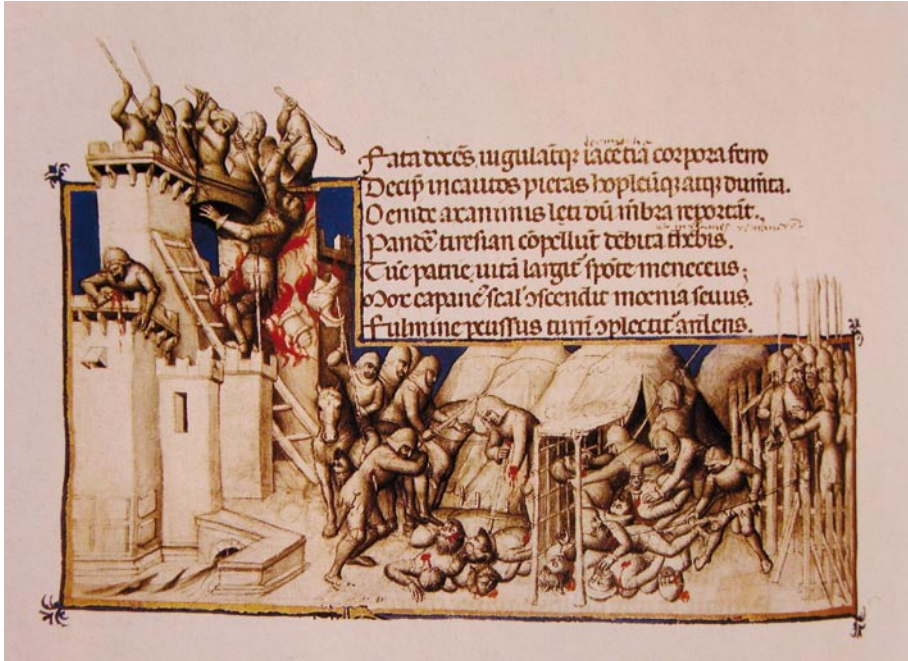 Fata docēs iugulatqʒ iacētiā corpora ferro
Decip̄ incautos pietas hopleūqʒ atqʒ dum̄ta.
Oenide axanimis leti dū mbra reportāt.
Pandē tiresian cōpellūt debita thebis.
Tūc patrie uitā largit᷑ spōte meneceus;
Mox capane᷒ scal̓ ↄscendit moenia seuus.
Fulmine ꝑcussus turrī ↄplectit᷑ ardens.